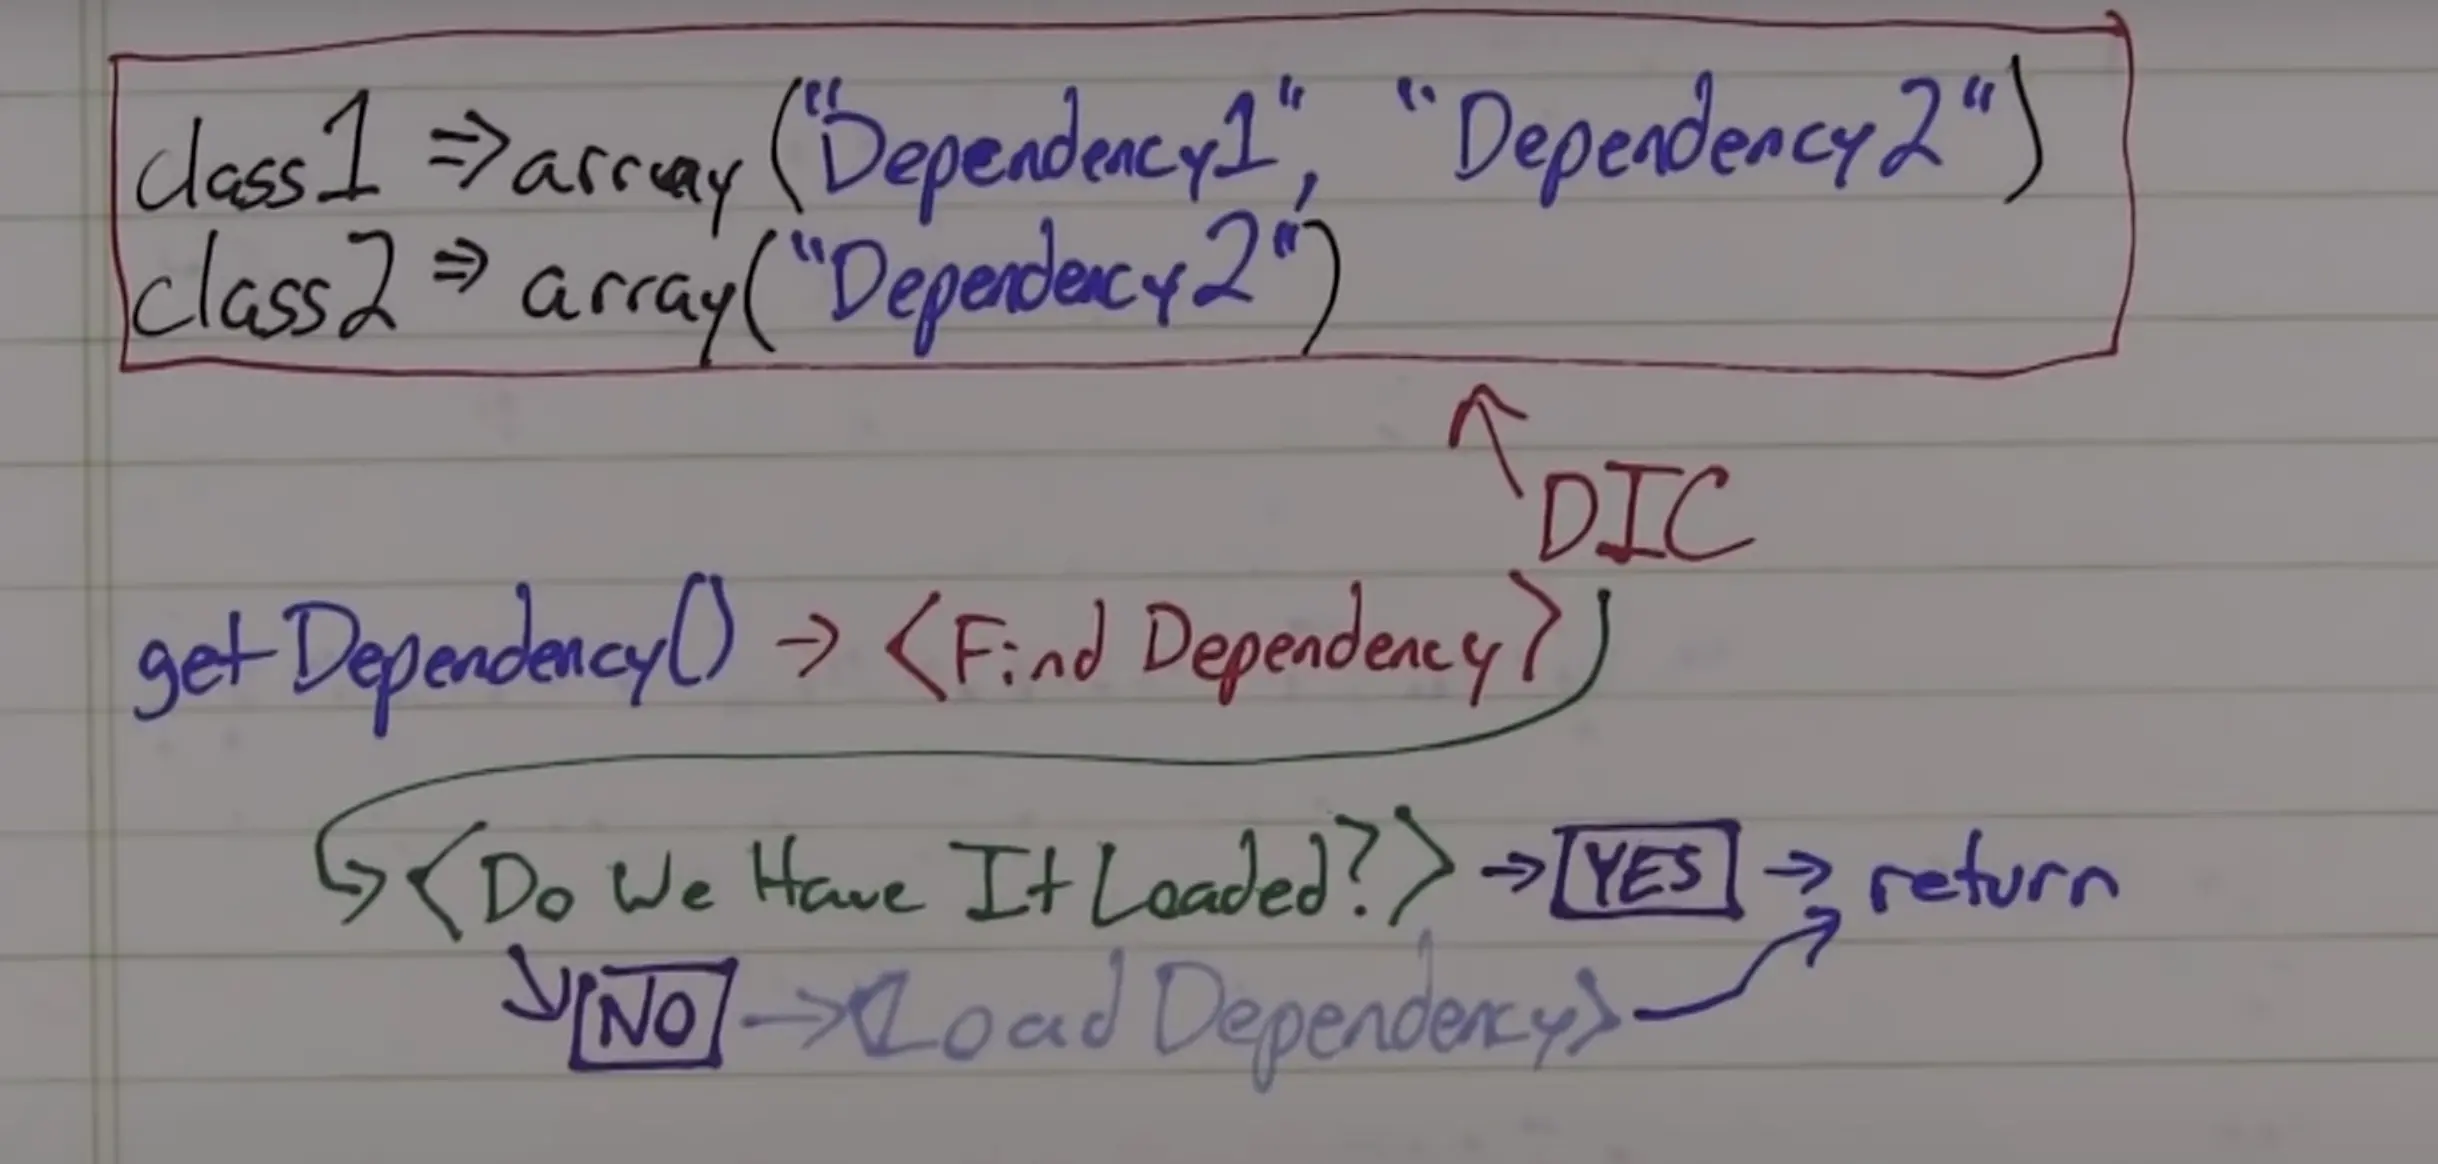 class1 => array("Dependency1", "Dependency2")
class2 => array("Dependency2")
DIC
getDependency() → <Find Dependency>
<Do We Have It Loaded?> → YES → return
NO → <Load Dependency>